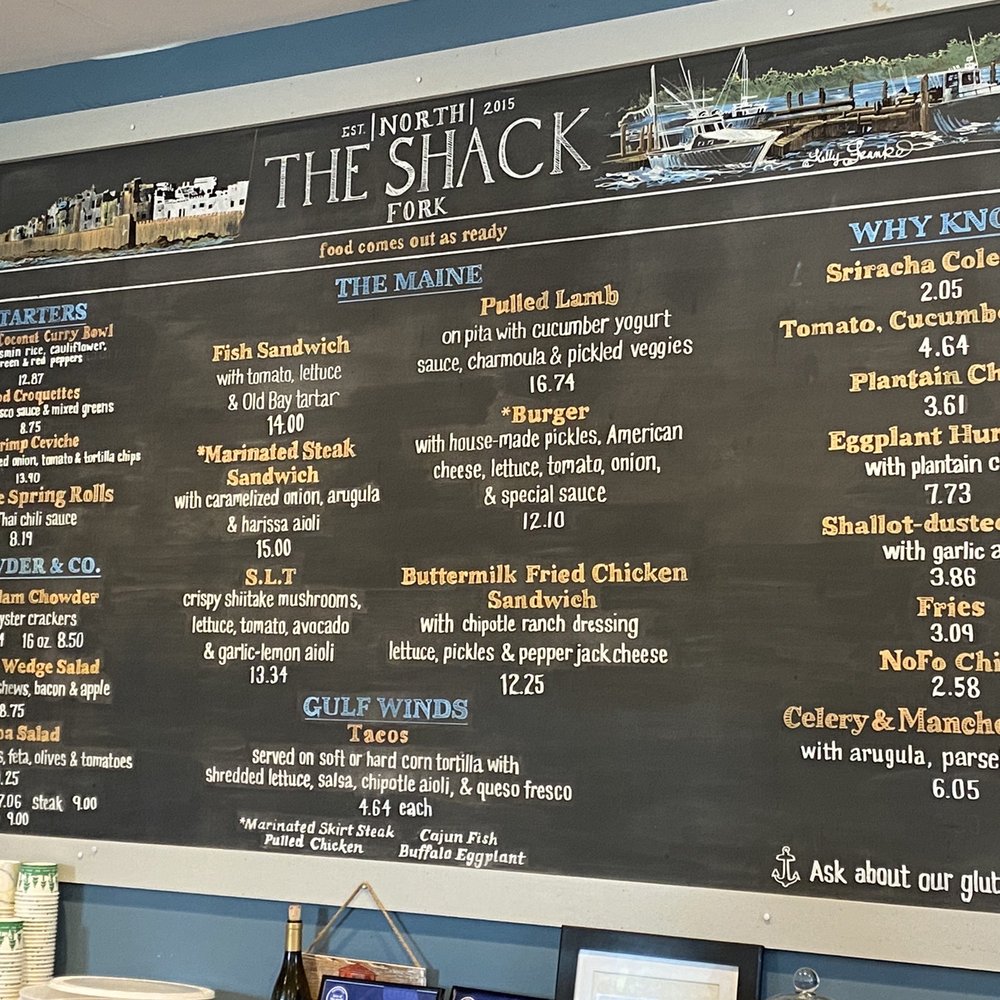 EST. NORTH 2015
THE SHACK
FORK
food comes out as ready
TARTERS
Coconut Curry Bowl
smin rice, cauliflower,
reen & red peppers
12.87
Croquettes
sco sauce & mixed greens
8.75
rimp Ceviche
ed onion, tomato & tortilla chips
13.40
Spring Rolls
Thai chili sauce
8.19
WDER & CO.
lam Chowder
yster crackers
16 oz. 8.50
Wedge Salad
shews, bacon & apple
8.75
Salad
feta, olives & tomatoes
.25
7.06 steak 9.00
9.00
THE MAINE
Fish Sandwich
with tomato, lettuce
& Old Bay tartar
14.00
*Marinated Steak
Sandwich
with caramelized onion, arugula
& harissa aioli
15.00
S.L.T
crispy shiitake mushrooms,
lettuce, tomato, avocado
& garlic-lemon aioli
13.34
Pulled Lamb
on pita with cucumber yogurt
sauce, charmoula & pickled veggies
16.74
*Burger
with house-made pickles, American
cheese, lettuce, tomato, onion,
& special sauce
12.10
Buttermilk Fried Chicken
Sandwich
with chipotle ranch dressing
lettuce, pickles & pepper jack cheese
12.25
GULF WINDS
Tacos
served on soft or hard corn tortilla with
shredded lettuce, salsa, chipotle aioli, & queso fresco
4.64 each
*Marinated Skirt Steak Cajun Fish
Pulled Chicken Buffalo Eggplant
WHY KNO
Sriracha Cole
2.05
Tomato, Cucumb
4.64
Plantain Ch
3.61
Eggplant Hu
with plantain c
7.73
Shallot-duste
with garlic a
3.86
Fries
3.09
NoFo Chi
2.58
Celery & Manche
with arugula, parse
6.05
Ask about our glut